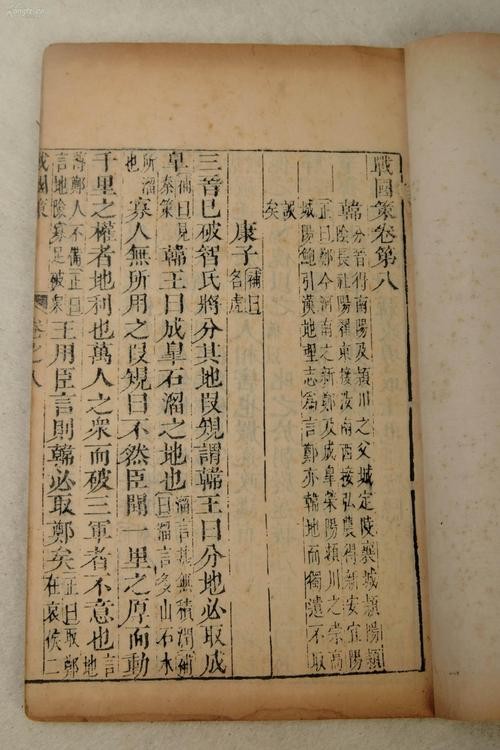 戰國策卷第八
韓分晉得南陽及潁川之父城定陵襄城潁陽潁
陰長社陽翟東接汝南西接弘農得新安宜陽
正曰鄭今河南之新鄭及成皋滎陽潁川之崇高
城陽鮑引漢地理志為言鄭亦韓地而獨遺不取
誤
矣
康子補曰名虎
三晉已破智氏將分其地段規謂韓王曰分地必取成
皋補曰見秦策韓王曰成皋石溜之地也溜言其無積潤補曰溜言多山石水
所溜也寡人無所用之段規曰不然臣聞一里之厚而動
千里之權者地利也萬人之衆而破三軍者不意也言地
得鄭人不備正曰言地險寡足破衆王用臣言則韓必取鄭矣正曰取鄭在哀侯二
戰國策 卷之八